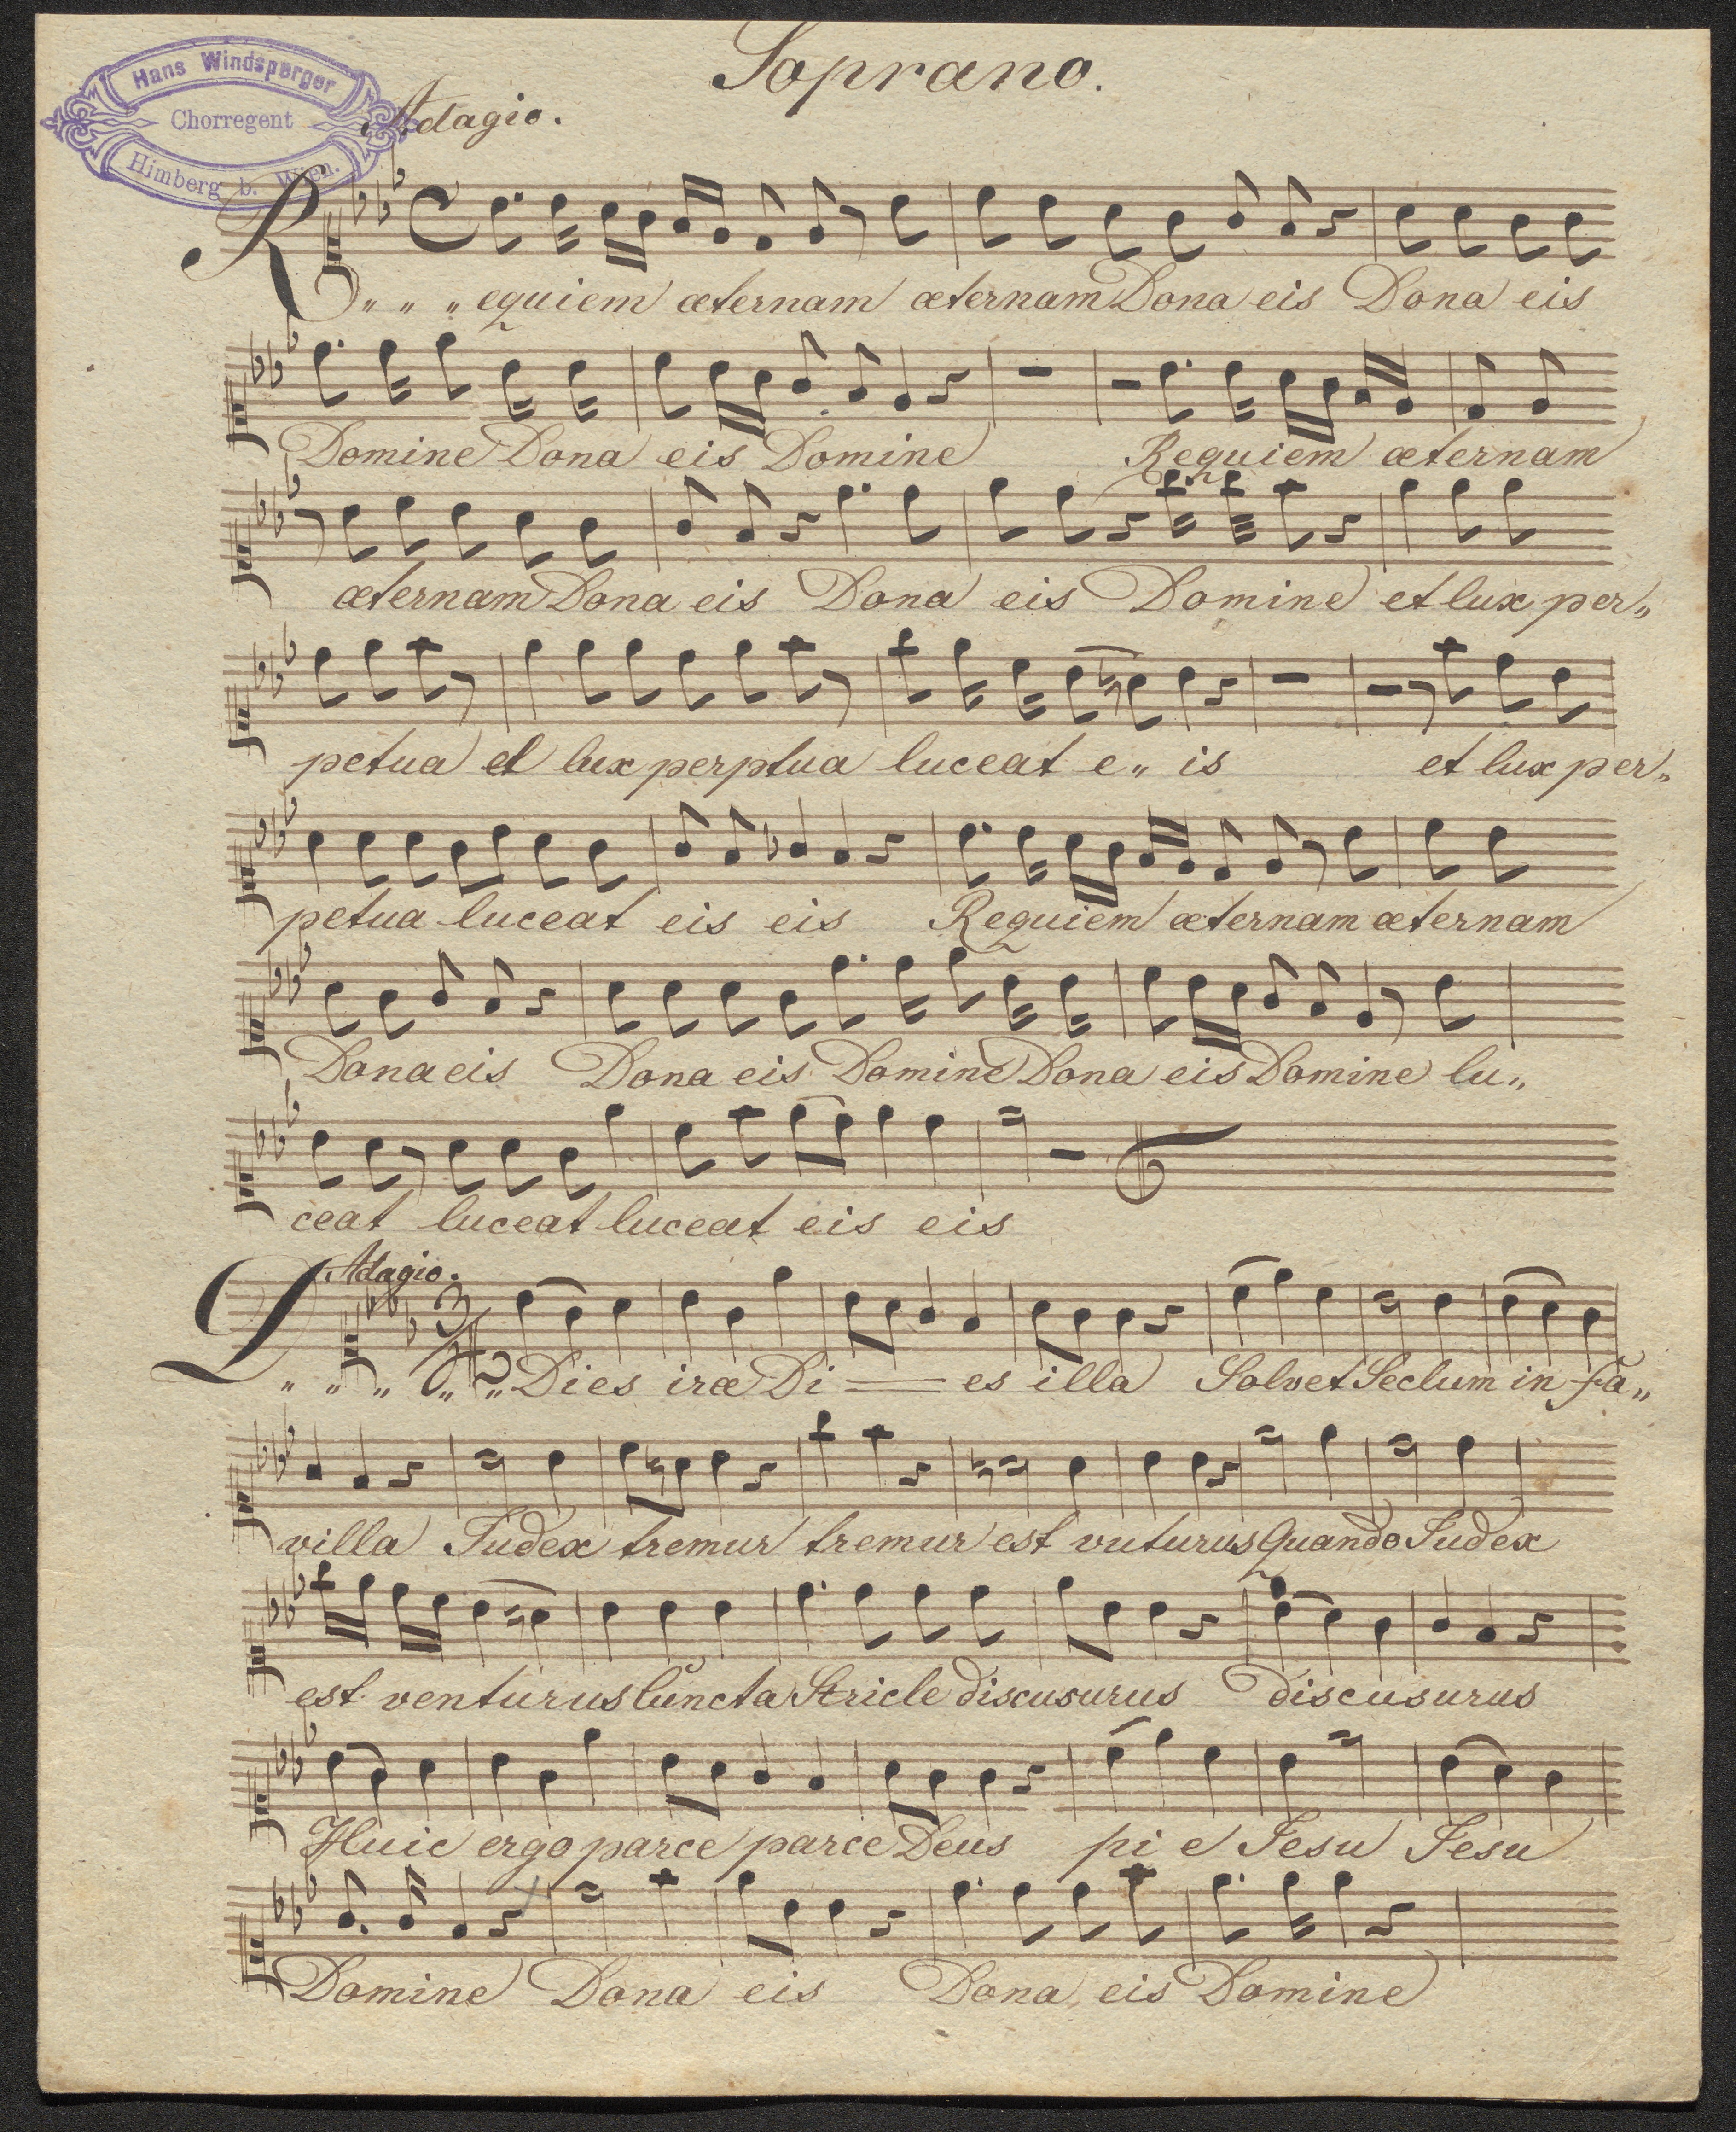 Soprano.
Hans Windsperger
Chorregent
Himberg b. Wien.
Adagio.
R„ „ „ equiem æternam æternam Dona eis Dona eis
Domine Dona eis Domine Requiem æternam
æternam Dona eis Dona eis Domine et lux per„
petua et lux perptua luceat e„ is et lux per„
petua luceat eis eis Requiem æternam æternam
Dona eis Dona eis Domine Dona eis Domine lu„
ceat luceat luceat eis eis
Adagio.
3/4
„ „ „ „ „ Dies iræ Di = es illa Solvet Seclum in fa„
villa Judex tremur tremur est vuturus Quando Judex
est venturus cuncta Stricle discusurus discusurus
Huic ergo parce parce Deus pi e Jesu Jesu
Domine Dona eis Dona eis Domine